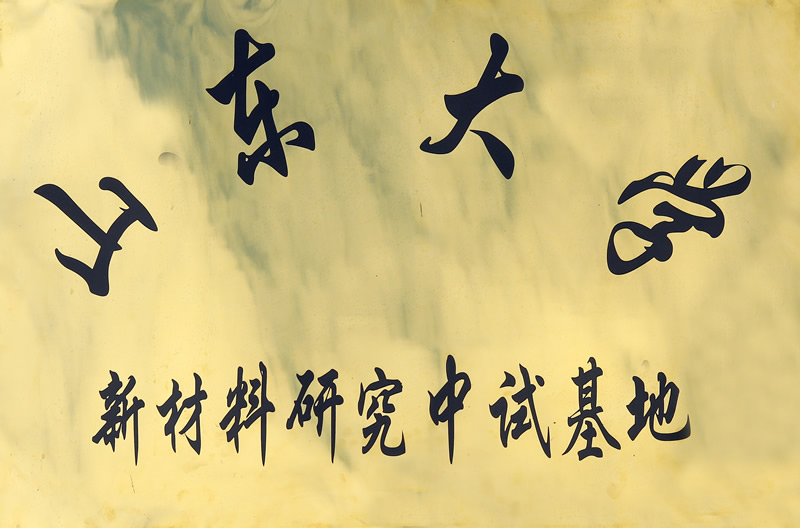 山东大学
新材料研究中试基地